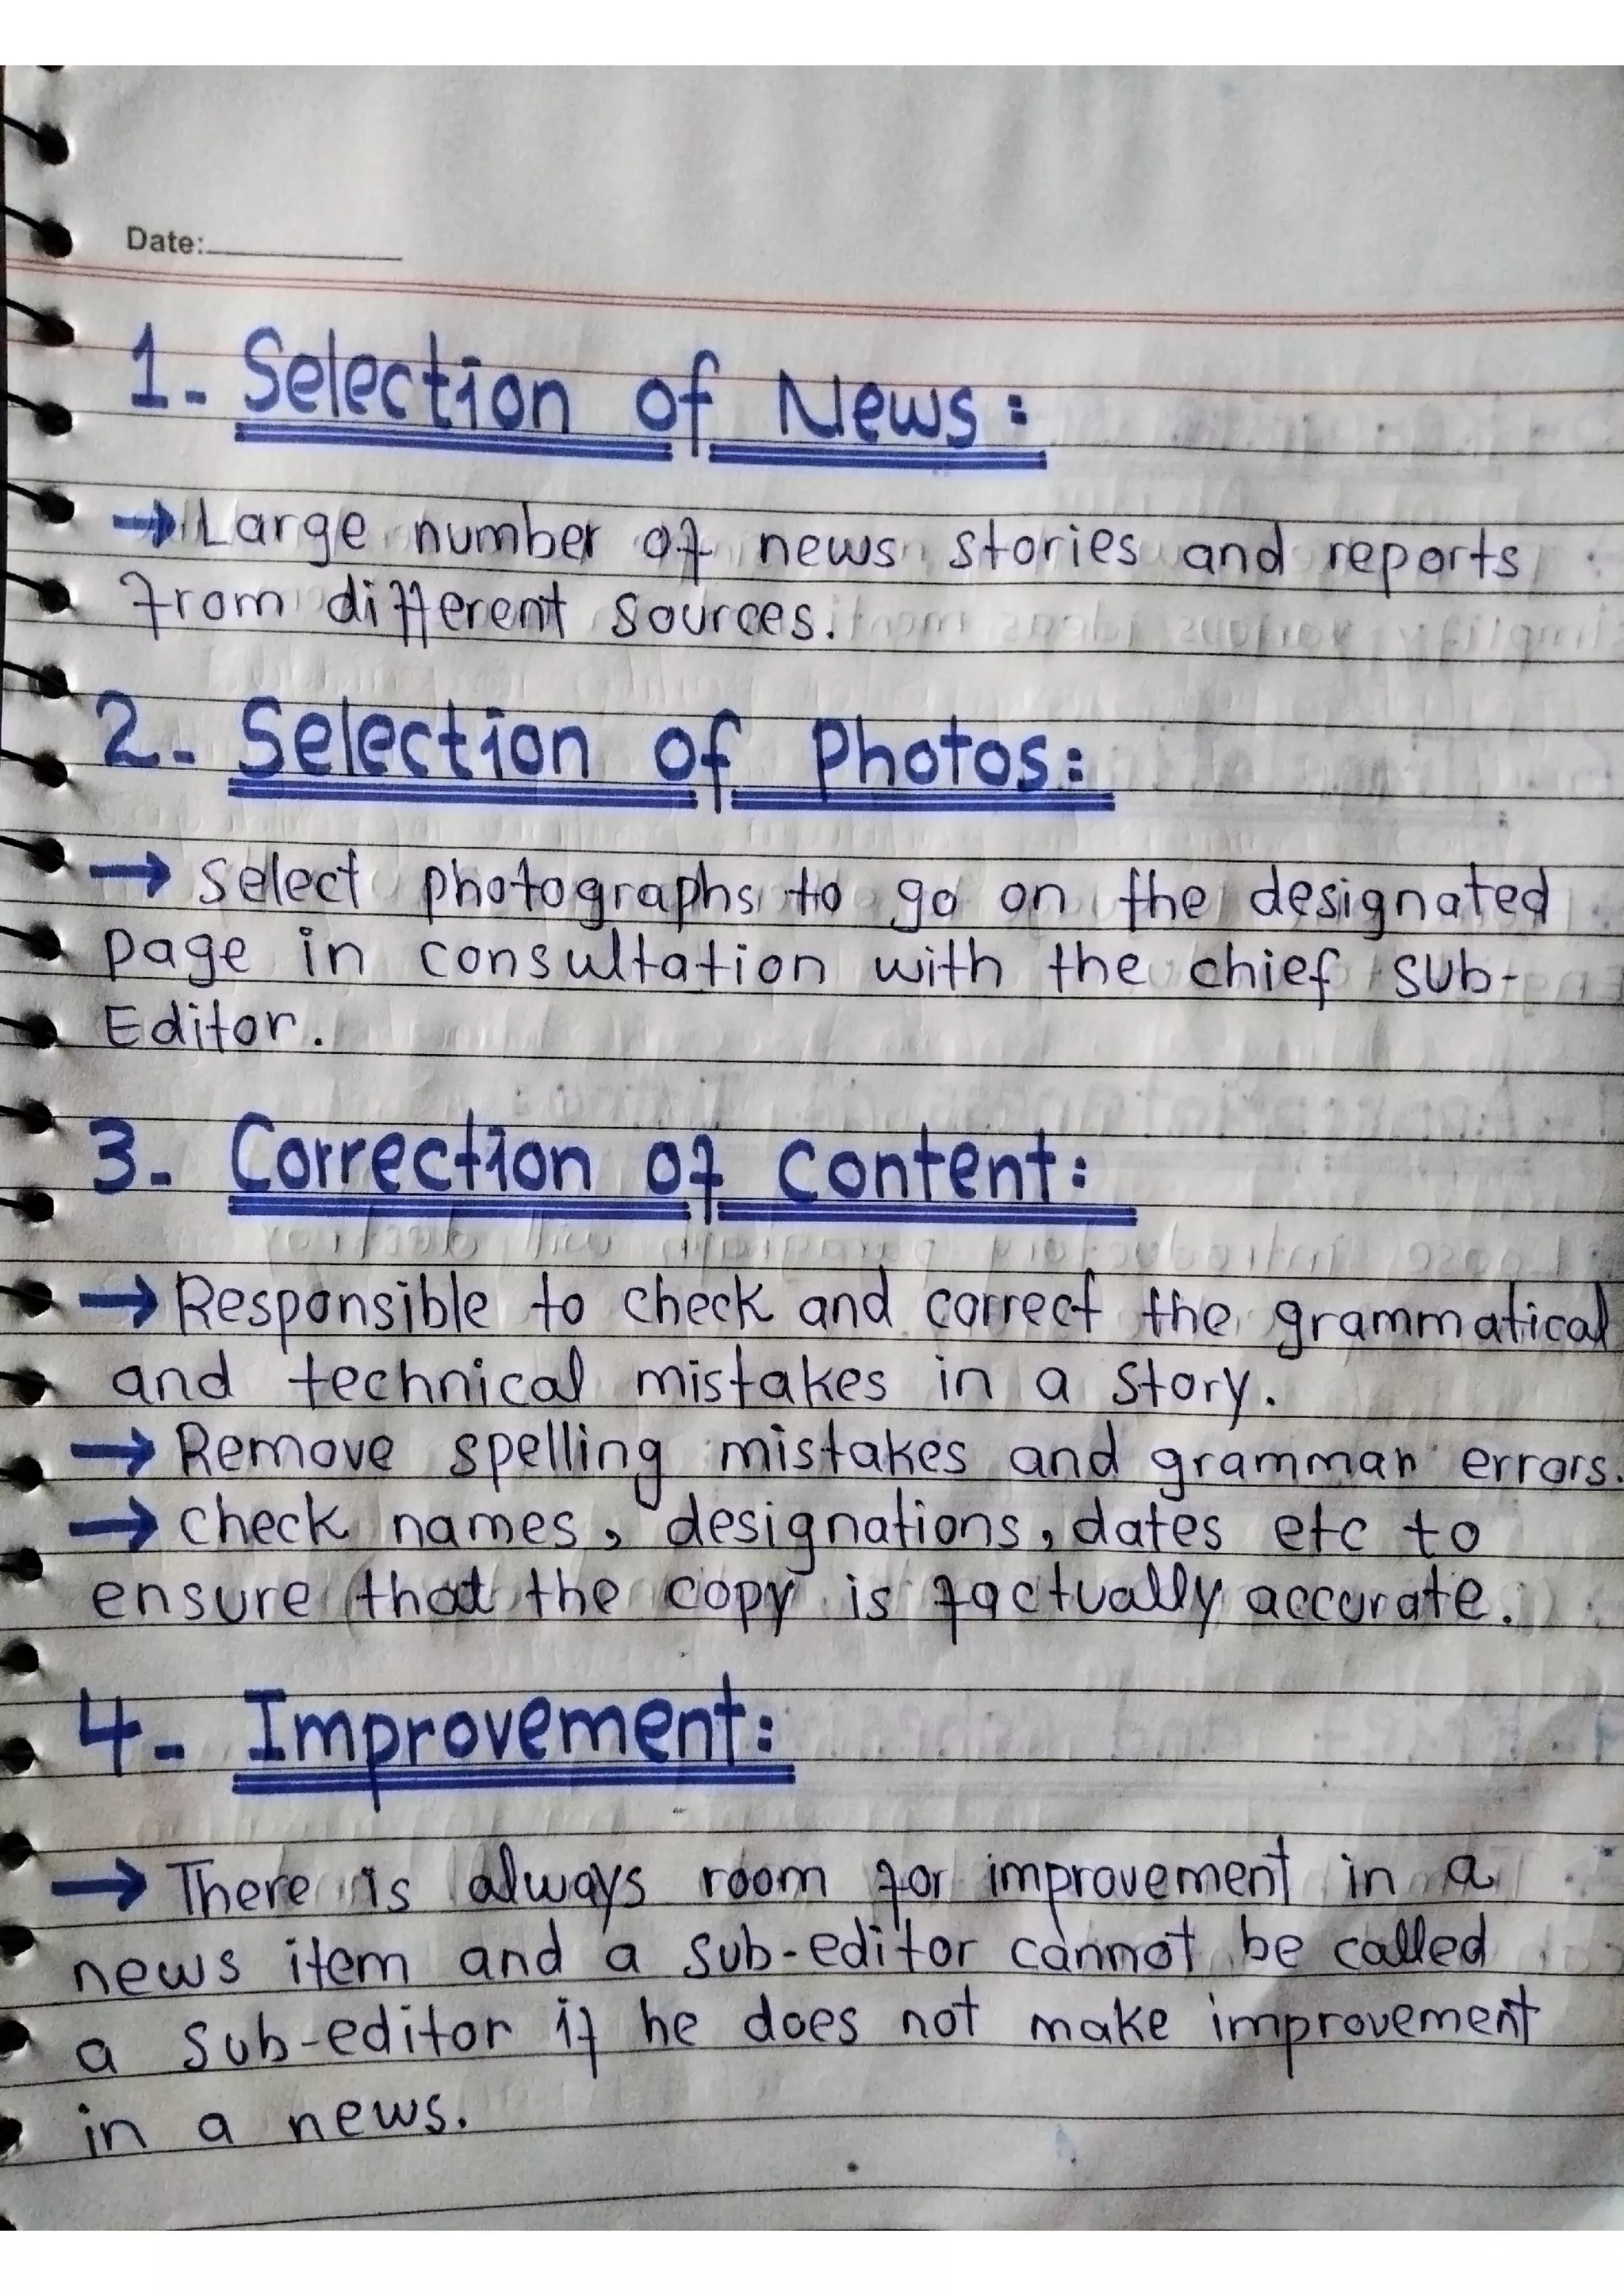 Date:
1- Selection of News:
→ Large number of news stories and reports
from different sources.
2- Selection of Photos:
→ Select photographs to go on the designated
page in consultation with the chief sub-
Editor.
3- Correction of Content:
→ Responsible to check and correct the grammatical
and technical mistakes in a story.
→ Remove spelling mistakes and grammar errors.
→ check names, designations, dates etc to
ensure that the copy is factually accurate.
4- Improvement:
→ There is always room for improvement in a
news item and a sub-editor cannot be called
a sub-editor if he does not make improvement
in a news.